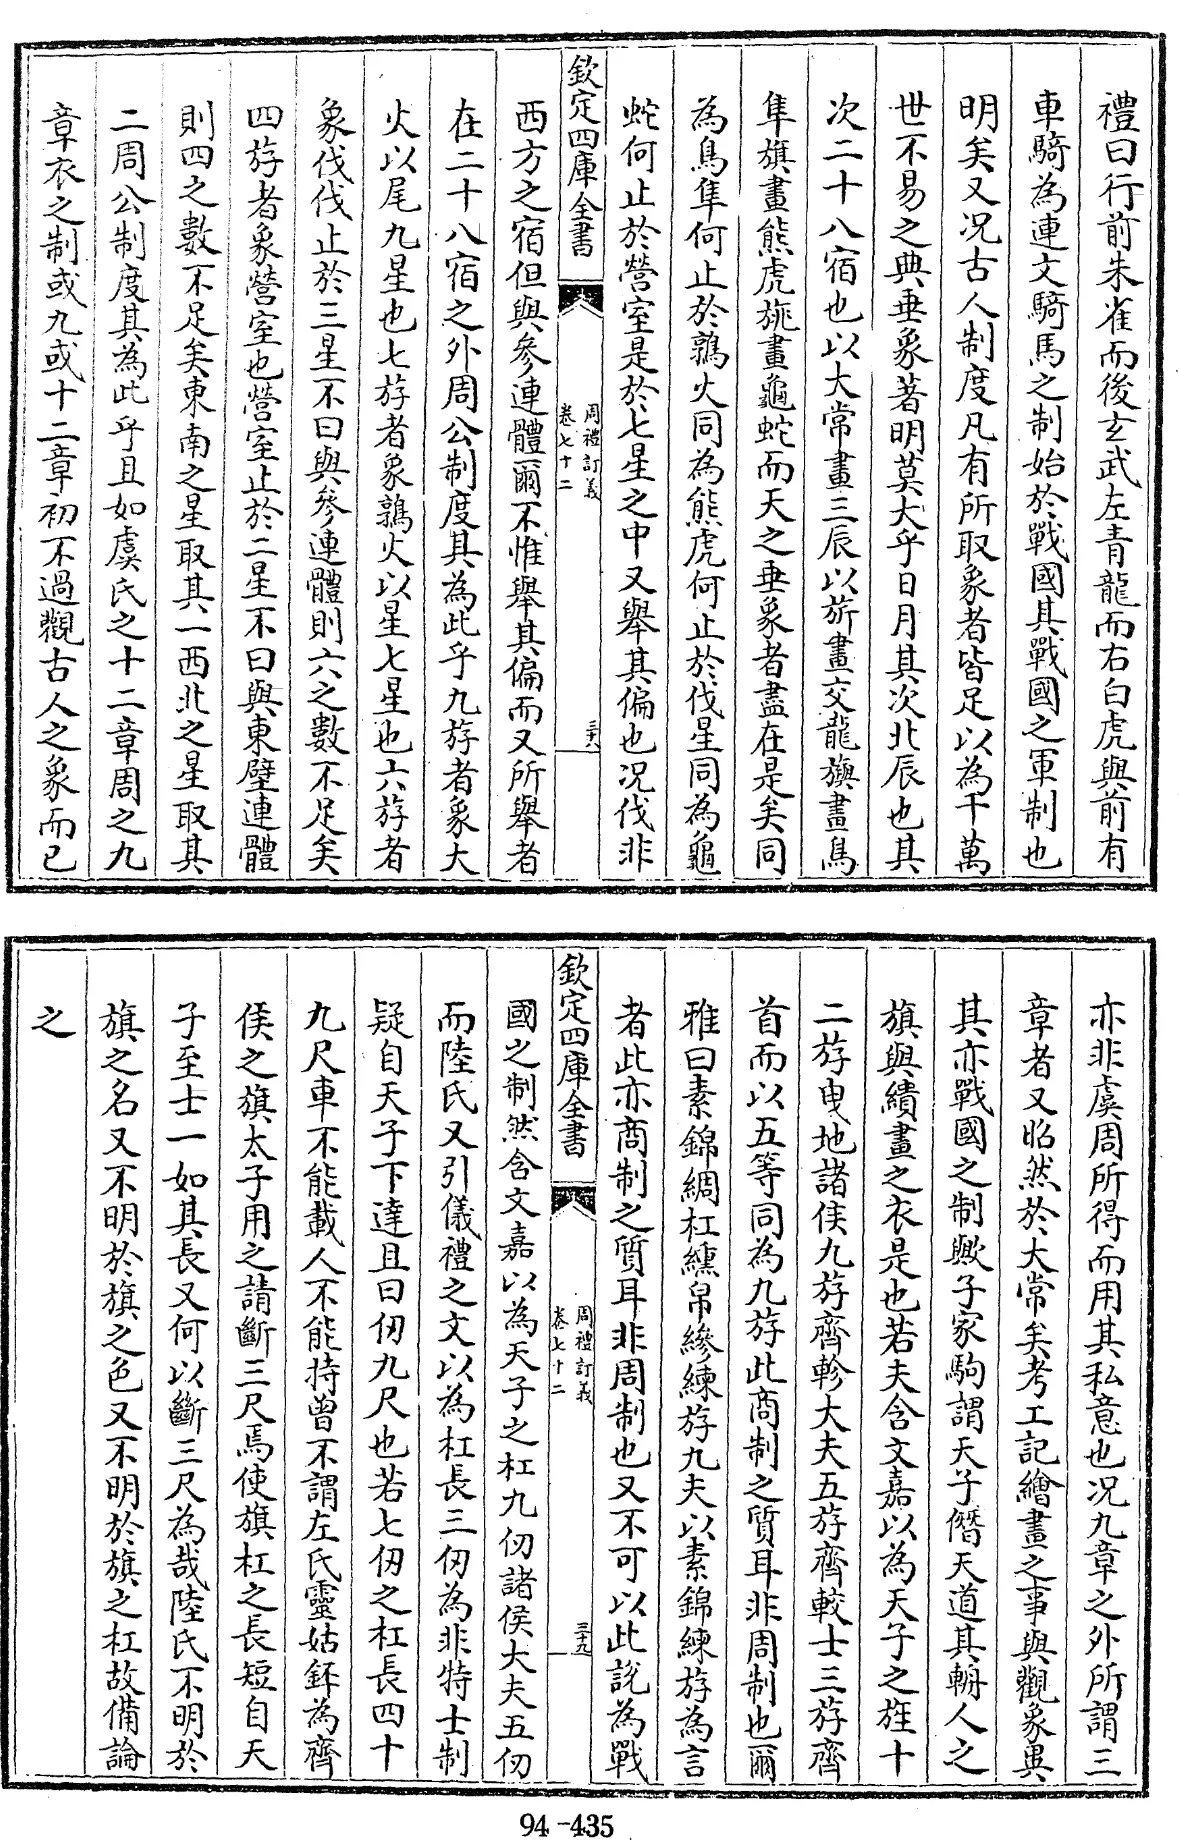 禮曰行前朱雀而後玄武左青龍而右白虎與前有
車騎為連文騎馬之制始於戰國其戰國之軍制也
明矣又况古人制度凡有所取象者皆足以為千萬
世不易之典垂象著明莫大乎日月其次北辰也其
次二十八宿也以大常畫三辰以旂畫交龍旟畫鳥
隼旗畫熊虎旐畫龜蛇而天之垂象者盡在是矣同
為鳥隼何止於鶉火同為熊虎何止於伐星同為龜
蛇何止於營室是於七星之中又舉其偏也况伐非
欽定四庫全書
周禮訂義
卷七十二
三六
西方之宿但與參連體爾不惟舉其偏而又所舉者
在二十八宿之外周公制度其為此乎九斿者象大
火以尾九星也七斿者象鶉火以星七星也六斿者
象伐伐止於三星不曰與參連體則六之數不足矣
四斿者象營室也營室止於二星不曰與東壁連體
則四之數不足矣東南之星取其一西北之星取其
二周公制度其為此乎且如虞氏之十二章周之九
章衣之制或九或十二章初不過觀古人之象而已
亦非虞周所得而用其私意也况九章之外所謂三
章者又昭然於大常矣考工記繪畫之事與觀象異
其亦戰國之制歟子家駒謂天子僭天道其輈人之
旗與繢畫之衣是也若夫含文嘉以為天子之旌十
二斿曳地諸侯九斿齊軫大夫五斿齊較士三斿齊
首而以五等同為九斿此商制之質耳非周制也爾
雅曰素錦綢杠纁帛縿練斿九夫以素錦練斿為言
者此亦商制之質耳非周制也又不可以此說為戰
欽定四庫全書
周禮訂義
卷七十二
三十九
國之制然含文嘉以為天子之杠九仞諸侯大夫五仞
而陸氏又引儀禮之文以為杠長三仞為非特士制
疑自天子下達且曰仞九尺也若七仞之杠長四十
九尺車不能載人不能持曾不謂左氏靈姑銔為齊
侯之旗太子用之請斷三尺焉使旗杠之長短自天
子至士一如其長又何以斷三尺為哉陸氏不明於
旗之名又不明於旗之色又不明於旗之杠故備論
之
94-435